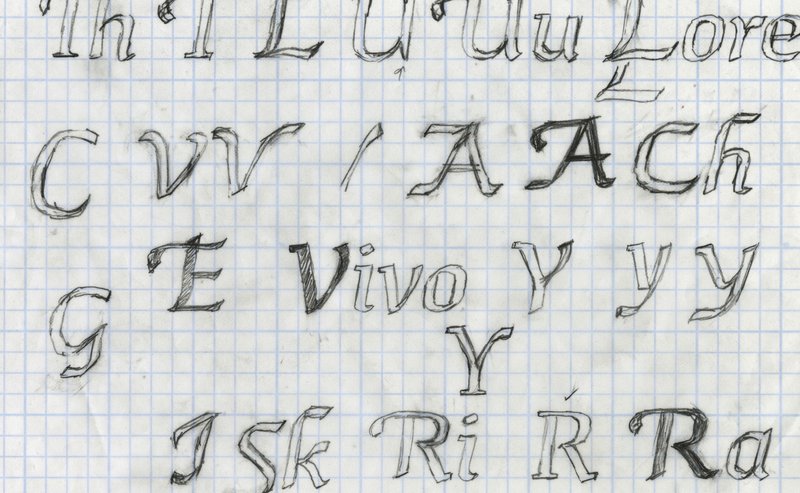 Th T L U Uu Lore
L
C v V / A A Ch
E Vivo Y y y
G
Y
I sk Ri R Ra